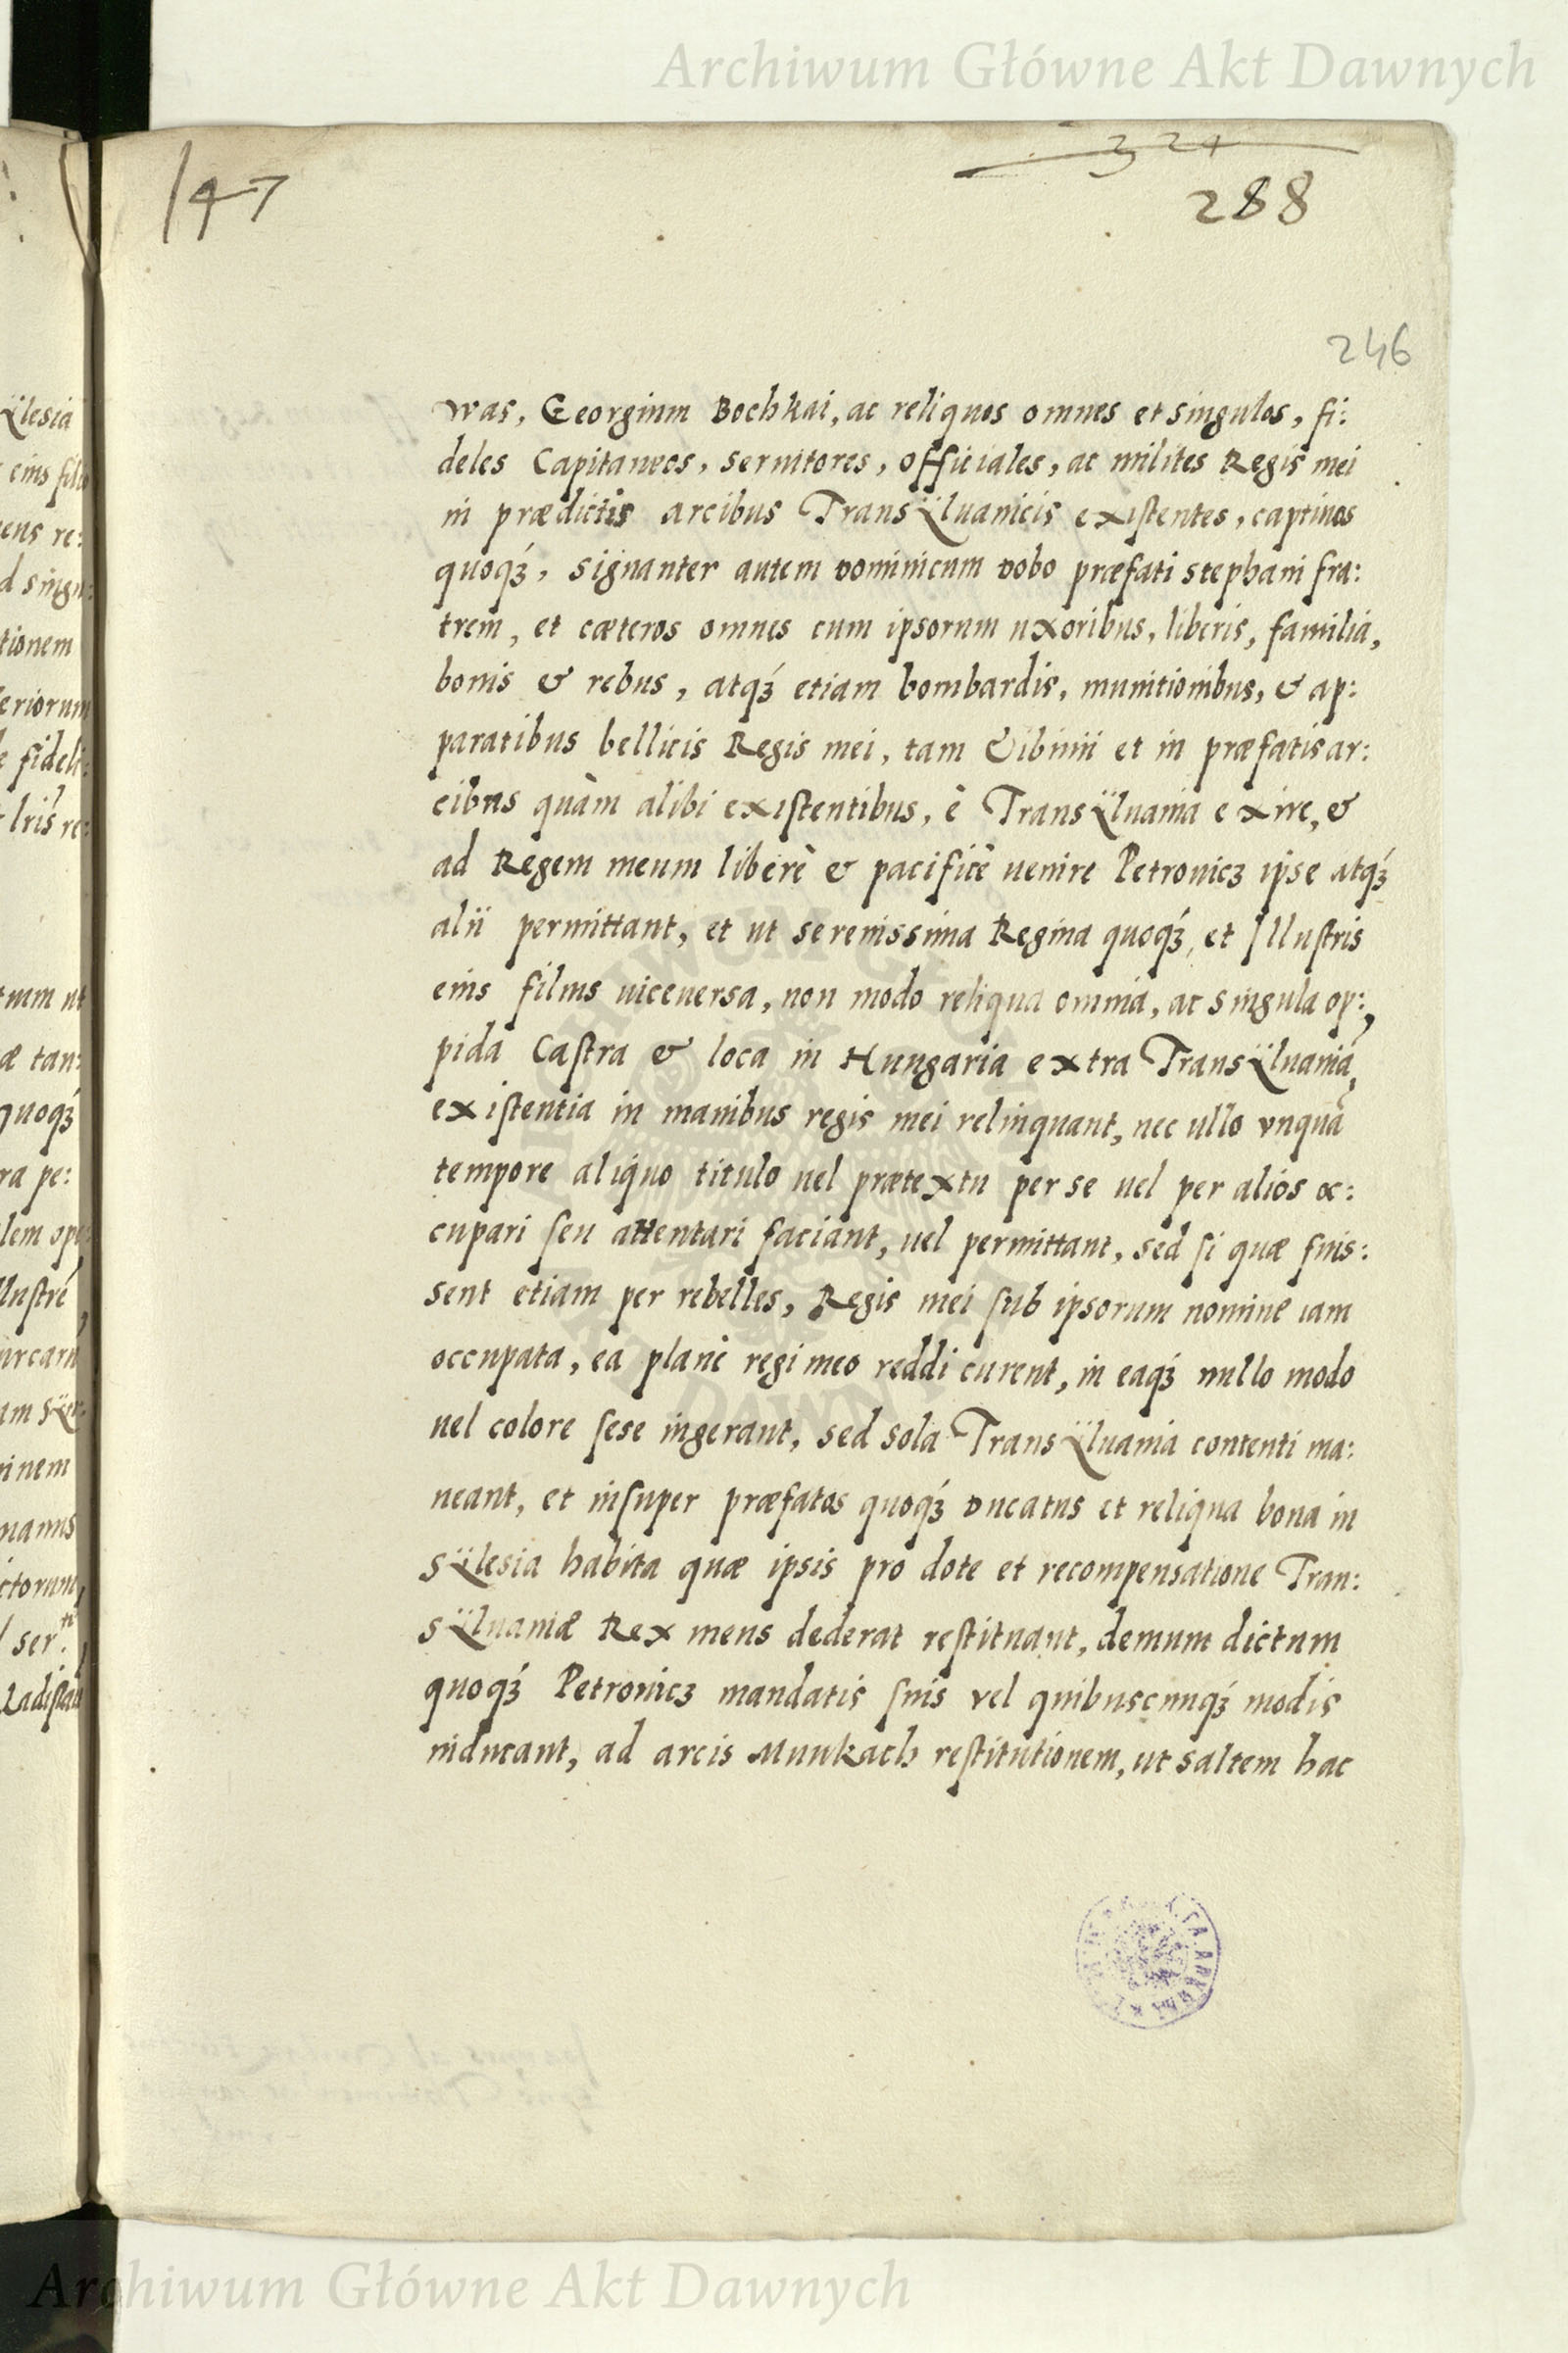 Archiwum Główne Akt Dawnych
147
321
288
246
was, Georgium Bochkai, ac reliquos omnes et singulos, fi:
deles Capitaneos, seruitores, officiales, ac milites Regis mei
in prædictis arcibus Transÿluanicis existentes, captiuos
quoqꝫ, signanter autem Dominicum Dobo præfati Stephani fra:
trem, et cæteros omnes cum ipsorum uxoribus, liberis, familia,
bonis & rebus, atqꝫ etiam bombardis, munitionibus, & ap:
paratibus bellicis Regis mei, tam Cibinii et in præfatis ar:
cibus quàm alibi existentibus, è Transÿluania exire, &
ad Regem meum liberè & pacificè uenire Petrouicz ipse atqꝫ
alii permittant, et ut serenissima Regina quoqꝫ, et Illustris
eius filius uiceuersa, non modo reliqua omnia, ac singula op:
pida Castra & loca in Hungaria extra Transÿluaniā,
existentia in manibus regis mei relinquant, nec ullo vnquā
tempore aliquo titulo uel prætextu per se uel per alios oc:
cupari seu attentari faciant, uel permittant, sed si quæ fuis:
sent etiam per rebelles, Regis mei sub ipsorum nomine iam
occupata, ea planè regi meo reddi curent, in eaqꝫ nullo modo
uel colore sese ingerant, sed sola Transÿluania contenti ma:
neant, et insuper præfatos quoqꝫ Ducatus et reliqua bona in
Sÿlesia habita quæ ipsis pro dote et recompensatione Tran:
sÿluaniæ Rex meus dederat restituant, demum dictum
quoqꝫ Petrouicz mandatis suis vel quibuscunqꝫ modis
inducant, ad arcis Munkach restitutionem, ut saltem hac
Archiwum Główne Akt Dawnych